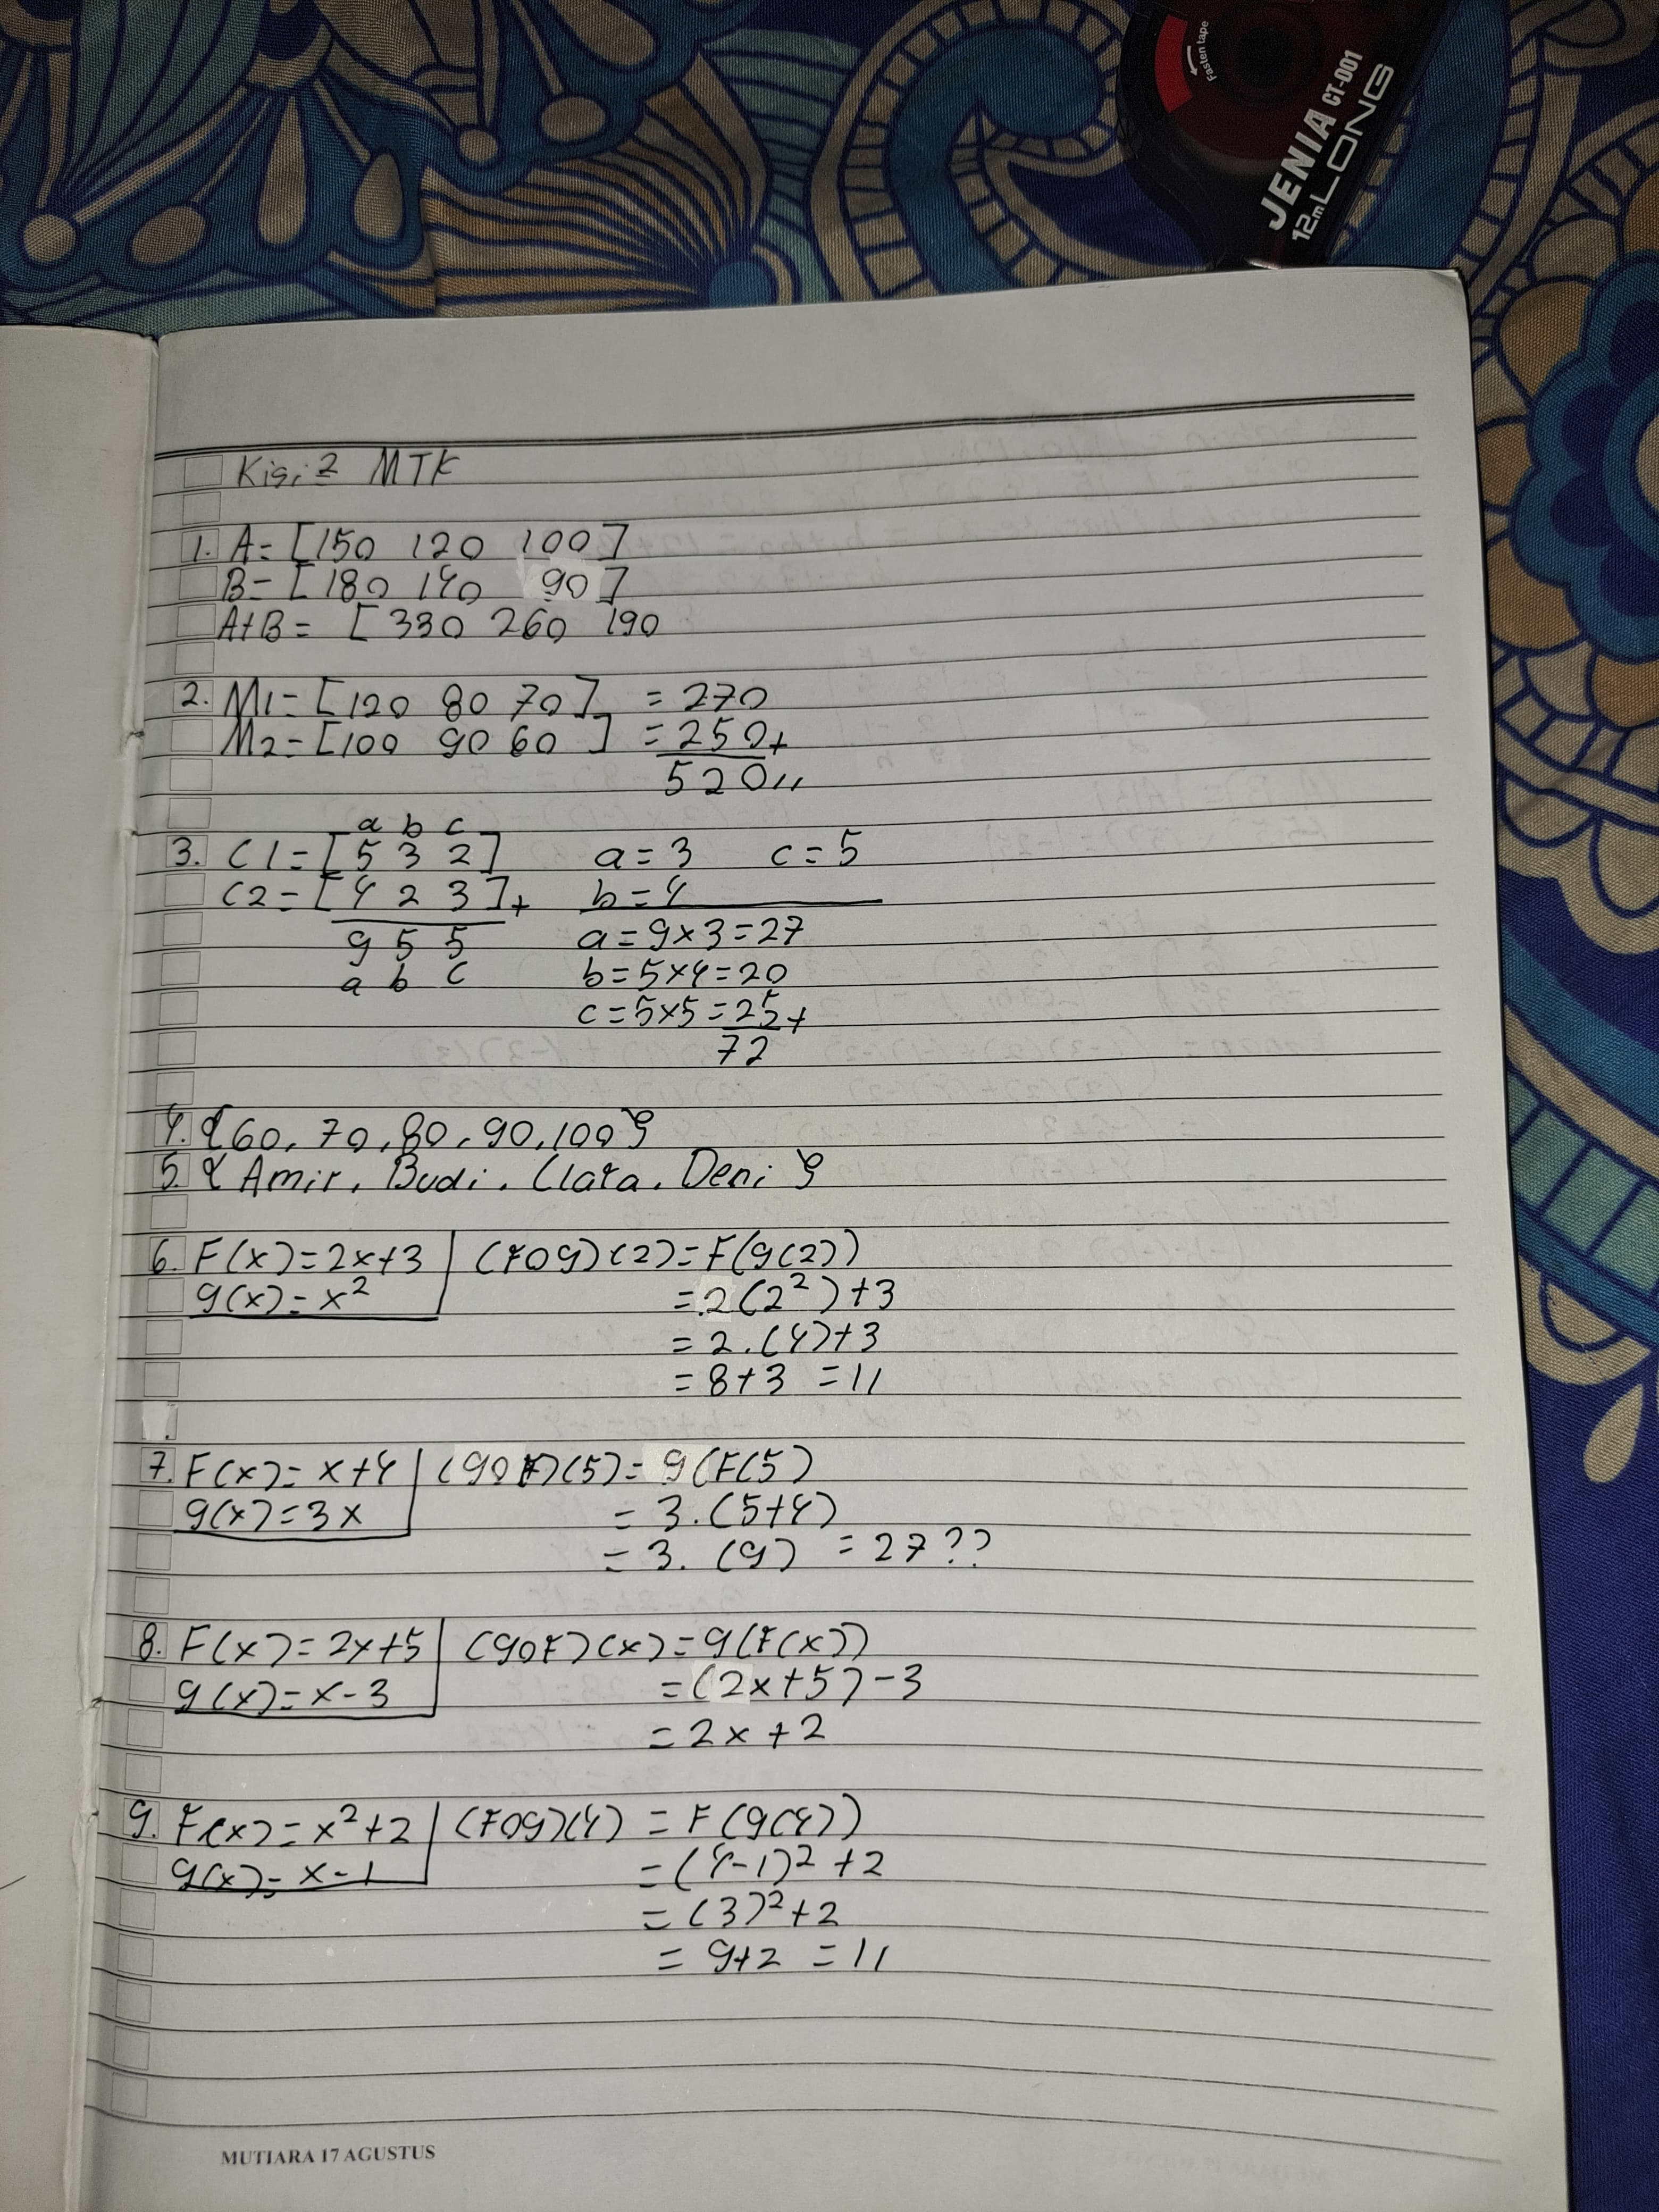 Fasten tape
JENIA CT-001
12m LONG
Kisi2 MTK
1. A = [150 120 100]
B = [180 140 90]
A+B = [330 260 190
2. M1 = [120 80 70] = 270
M2 = [100 90 60] = 250 +
520 //
a b c
3. C1 = [5 3 2] a = 3 c = 5
C2 = [4 2 3] + b = 4
9 5 5 a = 9 x 3 = 27
a b c b = 5 x 4 = 20
c = 5 x 5 = 25 +
72
4. {60, 70, 80, 90, 100}
5. {Amir, Budi, Clara, Deni}
6. F(x) = 2x + 3 | (Fog)(2) = F(g(2))
g(x) = x² = 2(2²) + 3
= 2.(4) + 3
= 8 + 3 = 11
7. F(x) = x + 4 | (goF)(5) = g(F(5)
g(x) = 3x = 3.(5+4)
= 3. (9) = 27??
8. F(x) = 2x + 5 | (goF)(x) = g(F(x))
g(x) = x - 3 = (2x + 5) - 3
= 2x + 2
9. F(x) = x² + 2 | (Fog)(4) = F(g(4))
g(x) = x - 1 = (4-1)² + 2
= (3)² + 2
= 9 + 2 = 11
MUTIARA 17 AGUSTUS